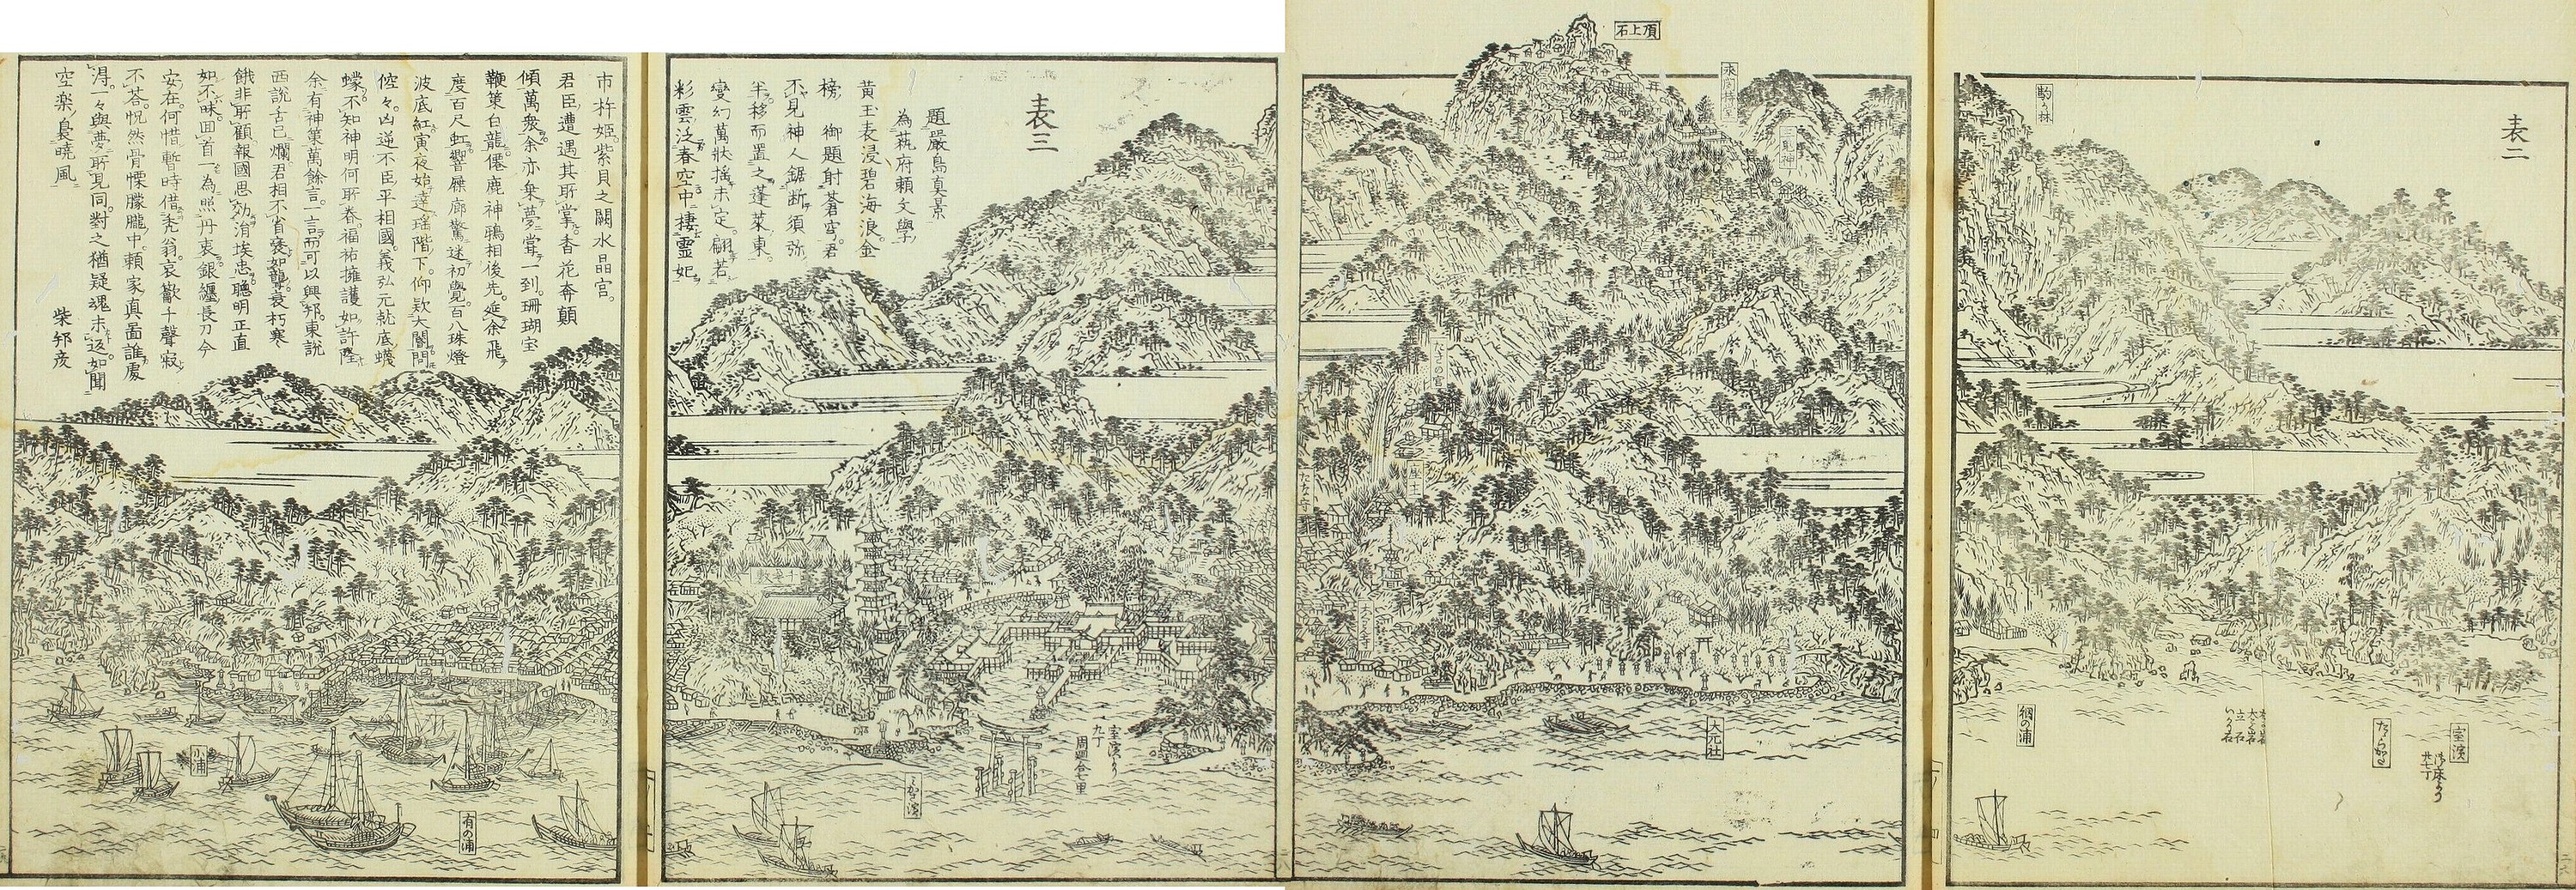 表二
駒ヶ林
室濱
網の浦
立石
頂上石
求聞持堂
三鬼神
大元社
表三
題嚴島真景
為萟府頼文學
黄玉表浸碧海浪金
榜 御題射蒼穹君
不見神人鋸断須弥
半移而置之蓬莱東
變幻萬状描未定翩若
彩雲泛春空中捿霊妃
千畳敷
室濱より
九丁
周廻合七里
市杵姫紫貝之闕水晶宮
君臣遭遇其所掌香花奔顛
傾萬衆余亦乗夢甞一到珊瑚宝
鞭策白龍僊鹿神鴉相後先延余飛
度百尺虹響屧廊驚迷初覺百八珠燈
波底紅寅夜始達瑶階下仰欵大閽問
倥々凶逆不臣平相國義弘元就底蟻
蠓不知神明何所眷福祐擁護如許隆
余有神策萬餘言一言而可以興邦東説
西説舌已爛君相不省褎如聾哀朽寒
餓非所顧報國思効涓埃忠聰明正直
如不昧回首一為照丹衷銀纒長刀今
安在何惜暫時借禿翁哀歡千聲寂
不荅怳然骨慄朦朧中頼家真畵誰處
得一々與夢所見同對之猶疑魂未返如聞
空楽裊曉風
柴邦彦
小浦
有の浦